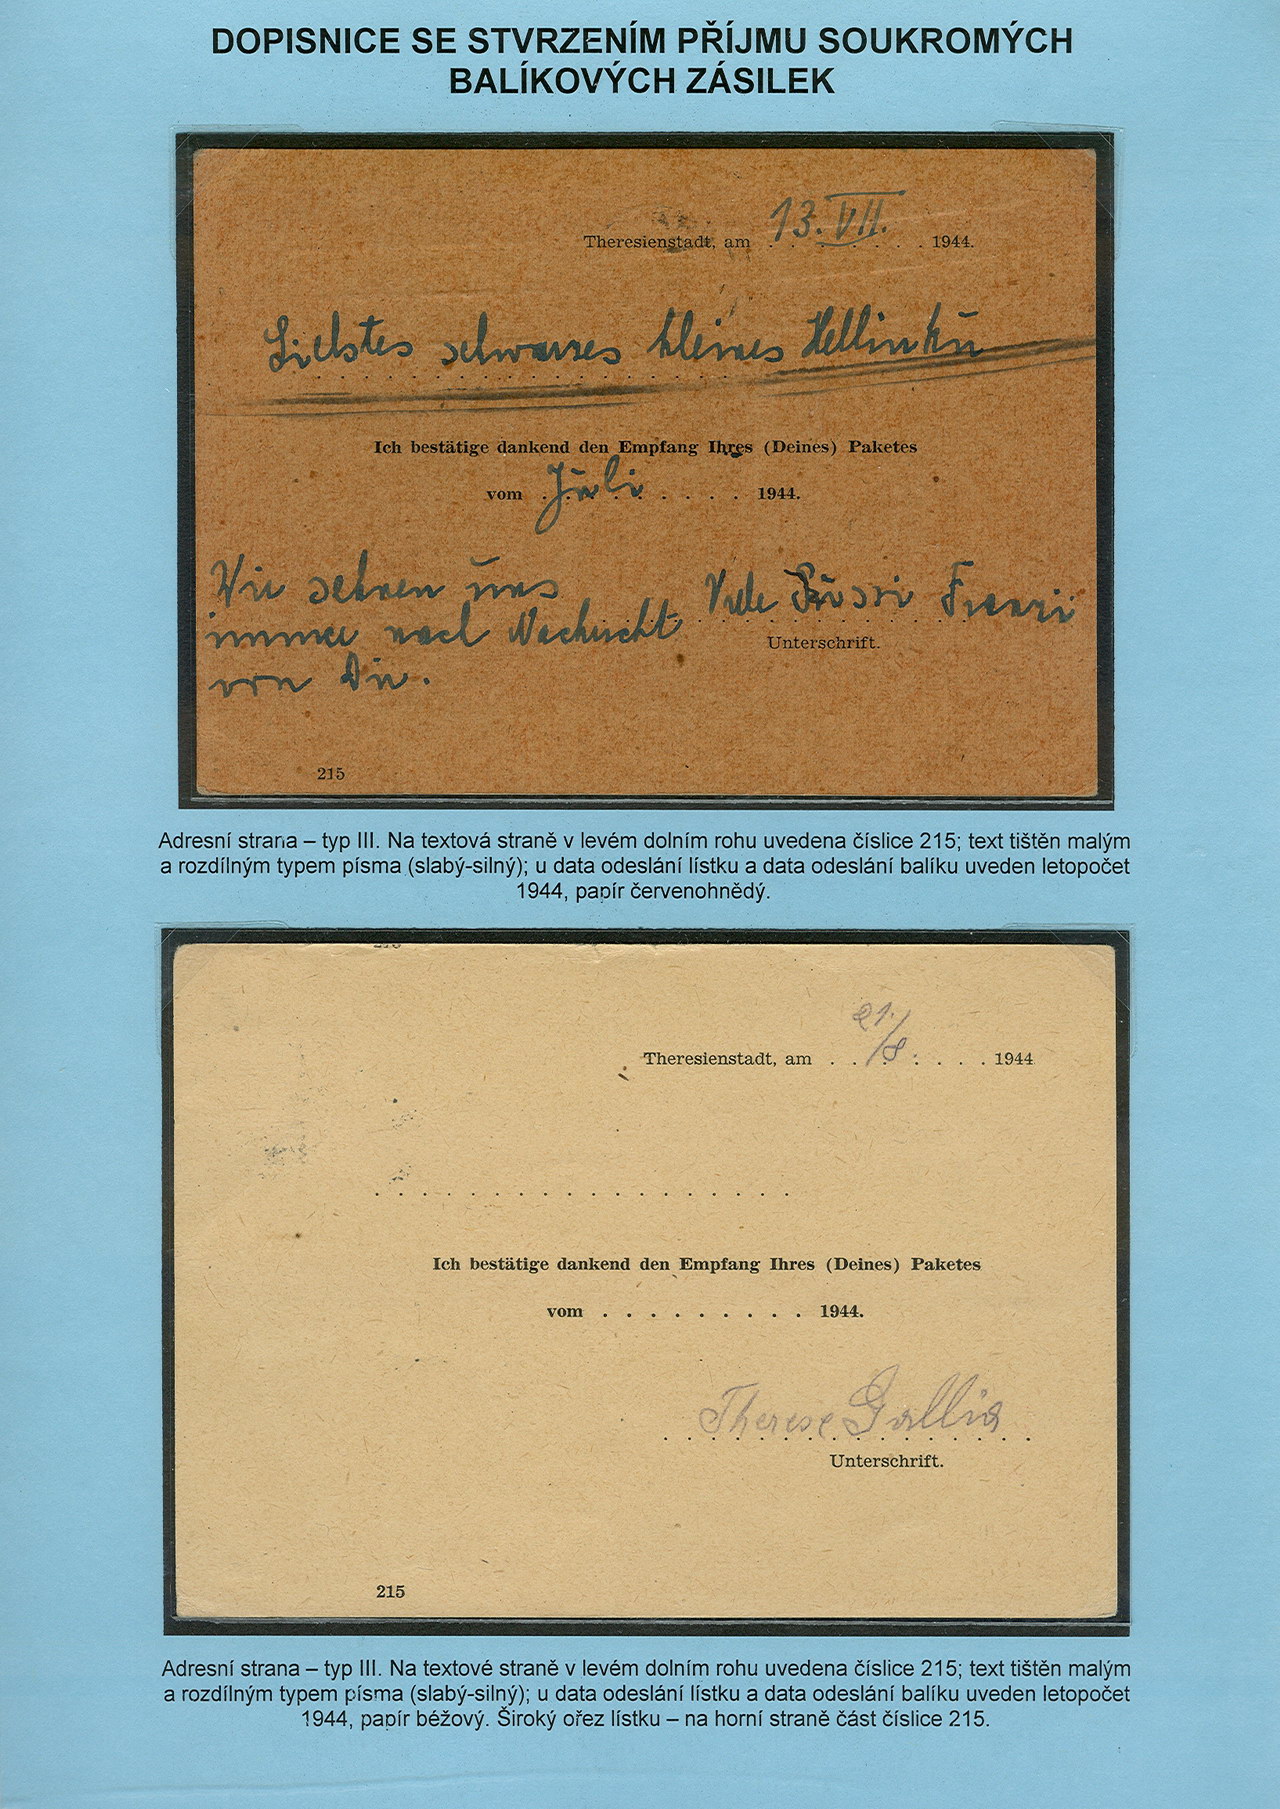 DOPISNICE SE STVRZENÍM PŘÍJMU SOUKROMÝCH
BALÍKOVÝCH ZÁSILEK
Theresienstadt, am 13. VII. 1944.
Liebstes schwarzes kleines
Ich bestätige dankend den Empfang Ihres (Deines) Paketes
vom Juli 1944.
Wir sehnen uns
immer nach Nachricht
von Dir.
Viele Bussi Franzi
Unterschrift.
215
Adresní strana – typ III. Na textová straně v levém dolním rohu uvedena číslice 215; text tištěn malým
a rozdílným typem písma (slabý-silný); u data odeslání lístku a data odeslání balíku uveden letopočet
1944, papír červenohnědý.
Theresienstadt, am 21./8. 1944
Ich bestätige dankend den Empfang Ihres (Deines) Paketes
vom . . . . . . . . . 1944.
Therese Gallia
Unterschrift.
215
Adresní strana – typ III. Na textové straně v levém dolním rohu uvedena číslice 215; text tištěn malým
a rozdílným typem písma (slabý-silný); u data odeslání lístku a data odeslání balíku uveden letopočet
1944, papír béžový. Široký ořez lístku – na horní straně část číslice 215.